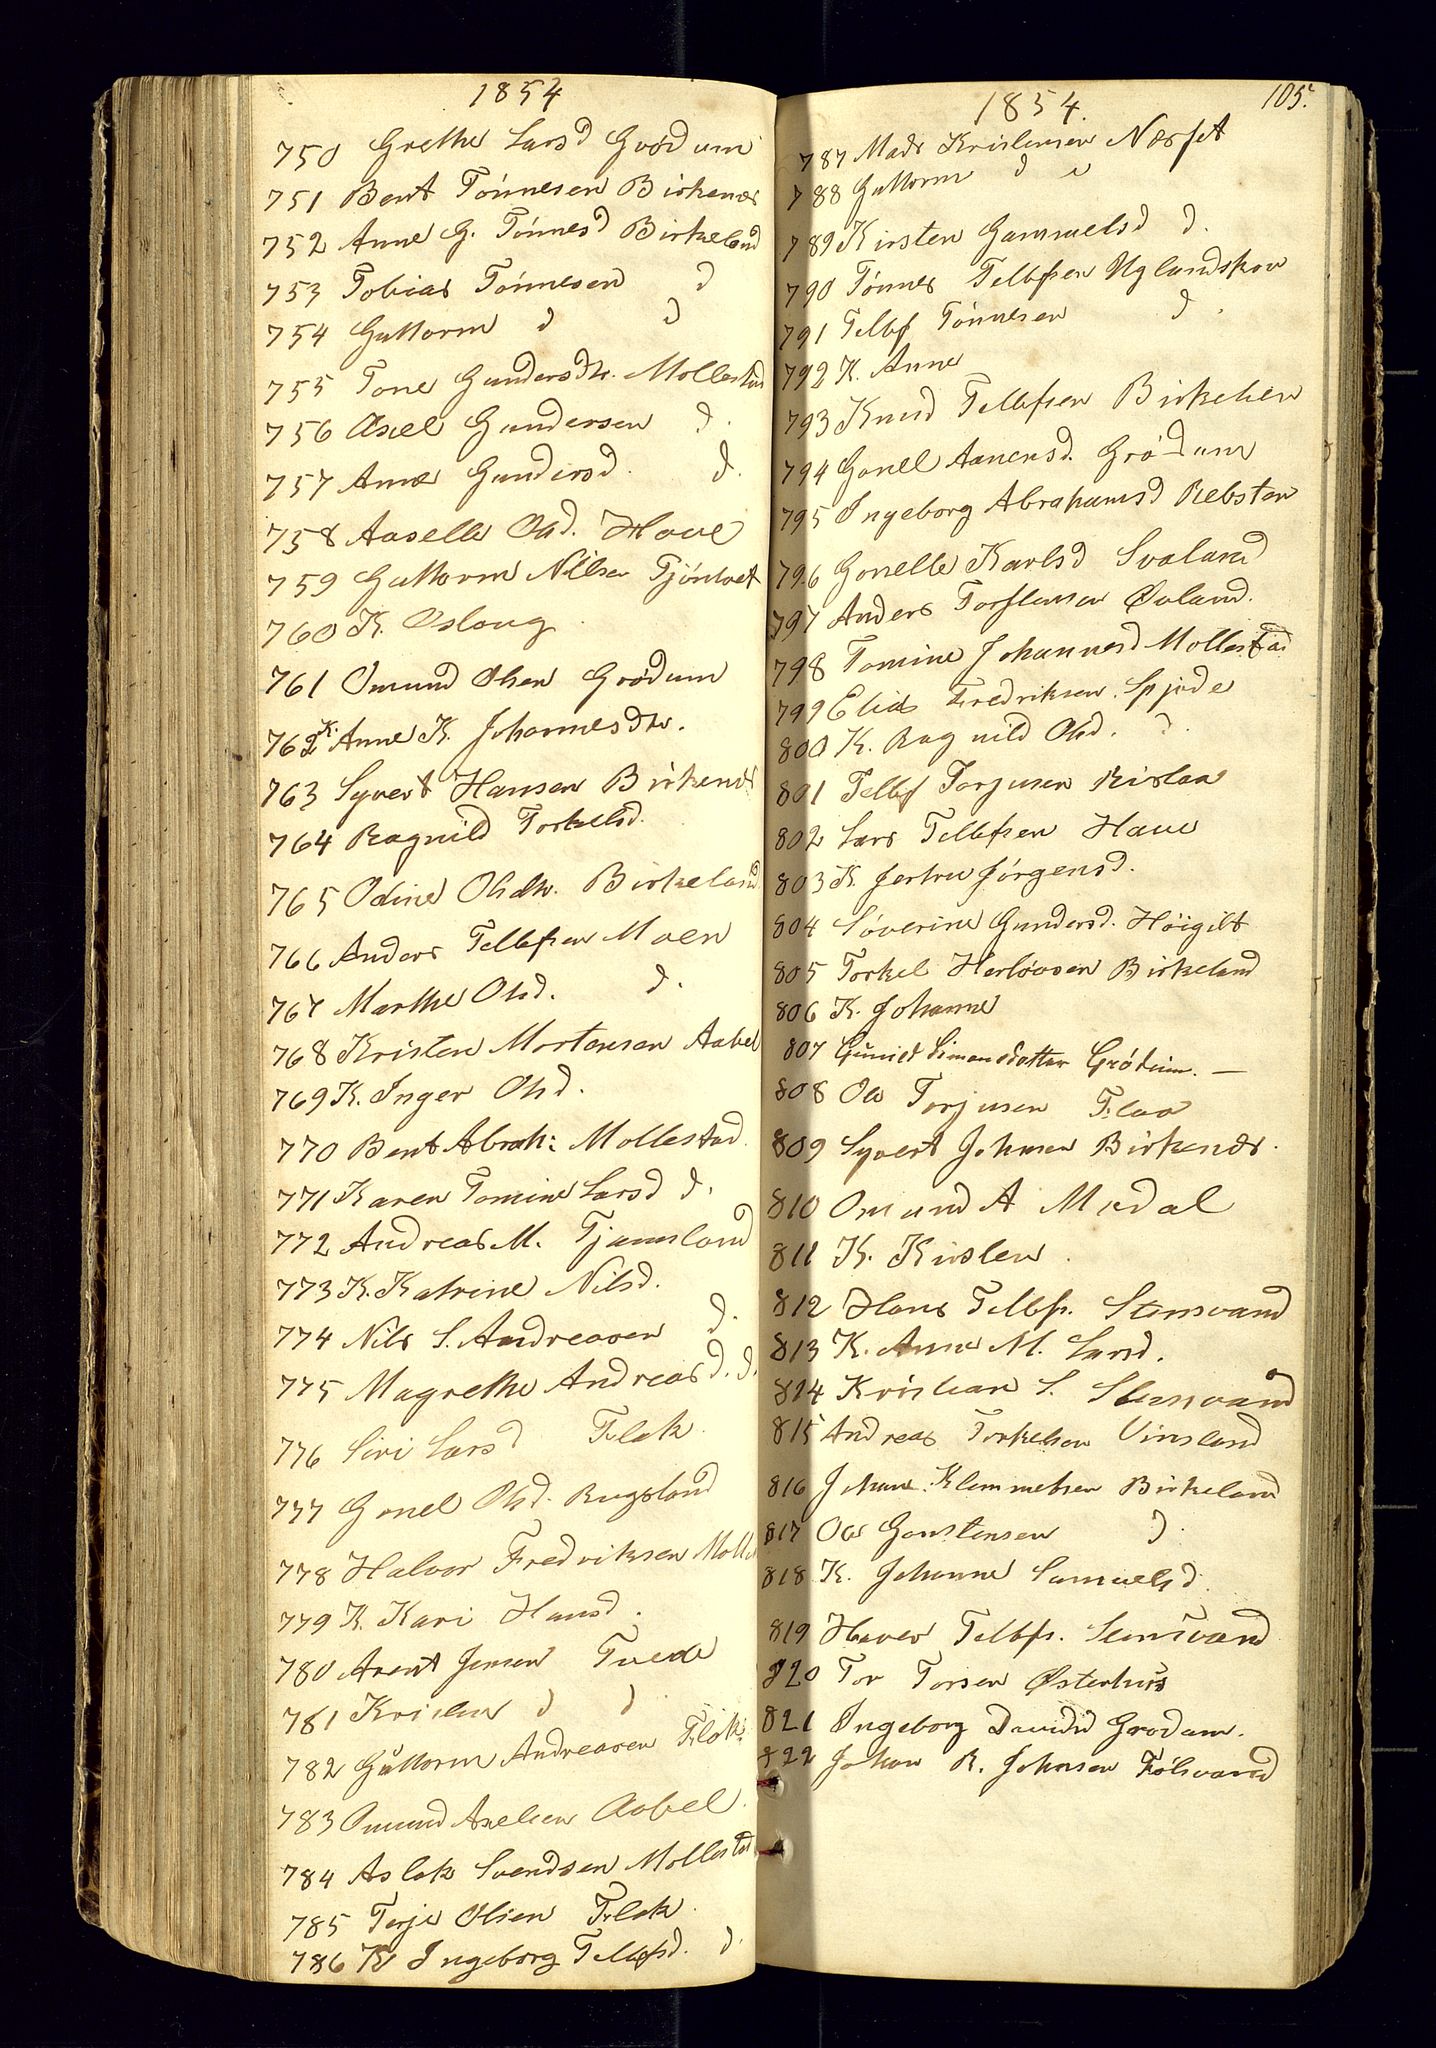 1854
750 Grethe Larsd Grødum
751 Bent Tønnesen Birkenes
752 Anne G. Tønnesd Birkeland
753 Tobias Tønnesen d
754 Guttorm d d
755 Tone Gundersdtr. Mollestad
756 Axel Gundersen d.
757 Anne Gundersd. d.
758 Aaselle Olsd. Hove
759 Guttorm Nilsen Tjöntvet
760 K. Oslaug
761 Omund Olsen Grødum
762 K. Anne K. Johannesdtr.
763 Syvert Hansen Birkenes
764 Ragnild Torkelsd.
765 Odine Olsdtr. Birkeland
766 Anders Tellefsen Moen
767 Marthe Olsd. d.
768 Kristen Mortensen Aabel
769 K. Inger Olsd.
770 Bent Abrah: Mollestad
771 Karen Tomine Larsd d.
772 Andreas M. Tjomsland
773 K. Katrine Nilsd.
774 Nils S. Andreasen d.
775 Magrethe Andreasd. d.
776 Siri Larsd Flak
777 Gonel Olsd. Rugsland
778 Halvor Fredriksen Moll
779 K. Kari Hansd.
780 Arent Jensen Tvede
781 Kristen d d
782 Guttorm Andreasen Flak
783 Omund Axelsen Aabel
784 Aslak Svendsen Mollestad
785 Terje Olsen Flak
786 K Ingeborg Tellefsd. d.
105.
1854.
787 Mads Kristensen Næset
788 Guttorm d
789 Kirsten Gammelsd d.
790 Tønnes Tellefsen Uglandskov
791 Tellef Tønnesen d.
792 K. Anne
793 Knud Tellefsen Birkelien
794 Gonel Aanensd. Grødum
795 Ingeborg Abrahamsd Rebsten
796 Gonelle Karlsd Svaland
797 Anders Torstensen Øvland.
798 Tomine Johannesd Mollestad
799 Elias Fredriksen. Spjode
800 K. Ragnild Olsd. d.
801 Tellef Torjusen Rislaa
802 Lars Tellefsen Have
803 K. Jertru Jørgensd.
804 Søverine Gundersd. Höigilt
805 Torkel Herløvsen Birkeland
806 K. Johanne
807 Gunild Simonsdatter Grødum. —
808 Ole Torjusen Flaa
809 Syvert Johnsen Birkenes.
810 Omund A Medal
811 K. Kirsten.
812 Hans Tellefs. Stensvand
813 K. Anne M. Larsd.
814 Kristian S. Stensvand
815 Andreas Torkelsen Vinsland
816 Johan Klemmetsen Birkeland
817 Ole Gonstensen d.
818 K. Johanne Samuelsd.
819 Haver Tellefs. Stensvand
820 Tor Torsen Østerhus
821 Ingeborg Davidsd Grødum.
822 Johan R. Johnsen Følsvand